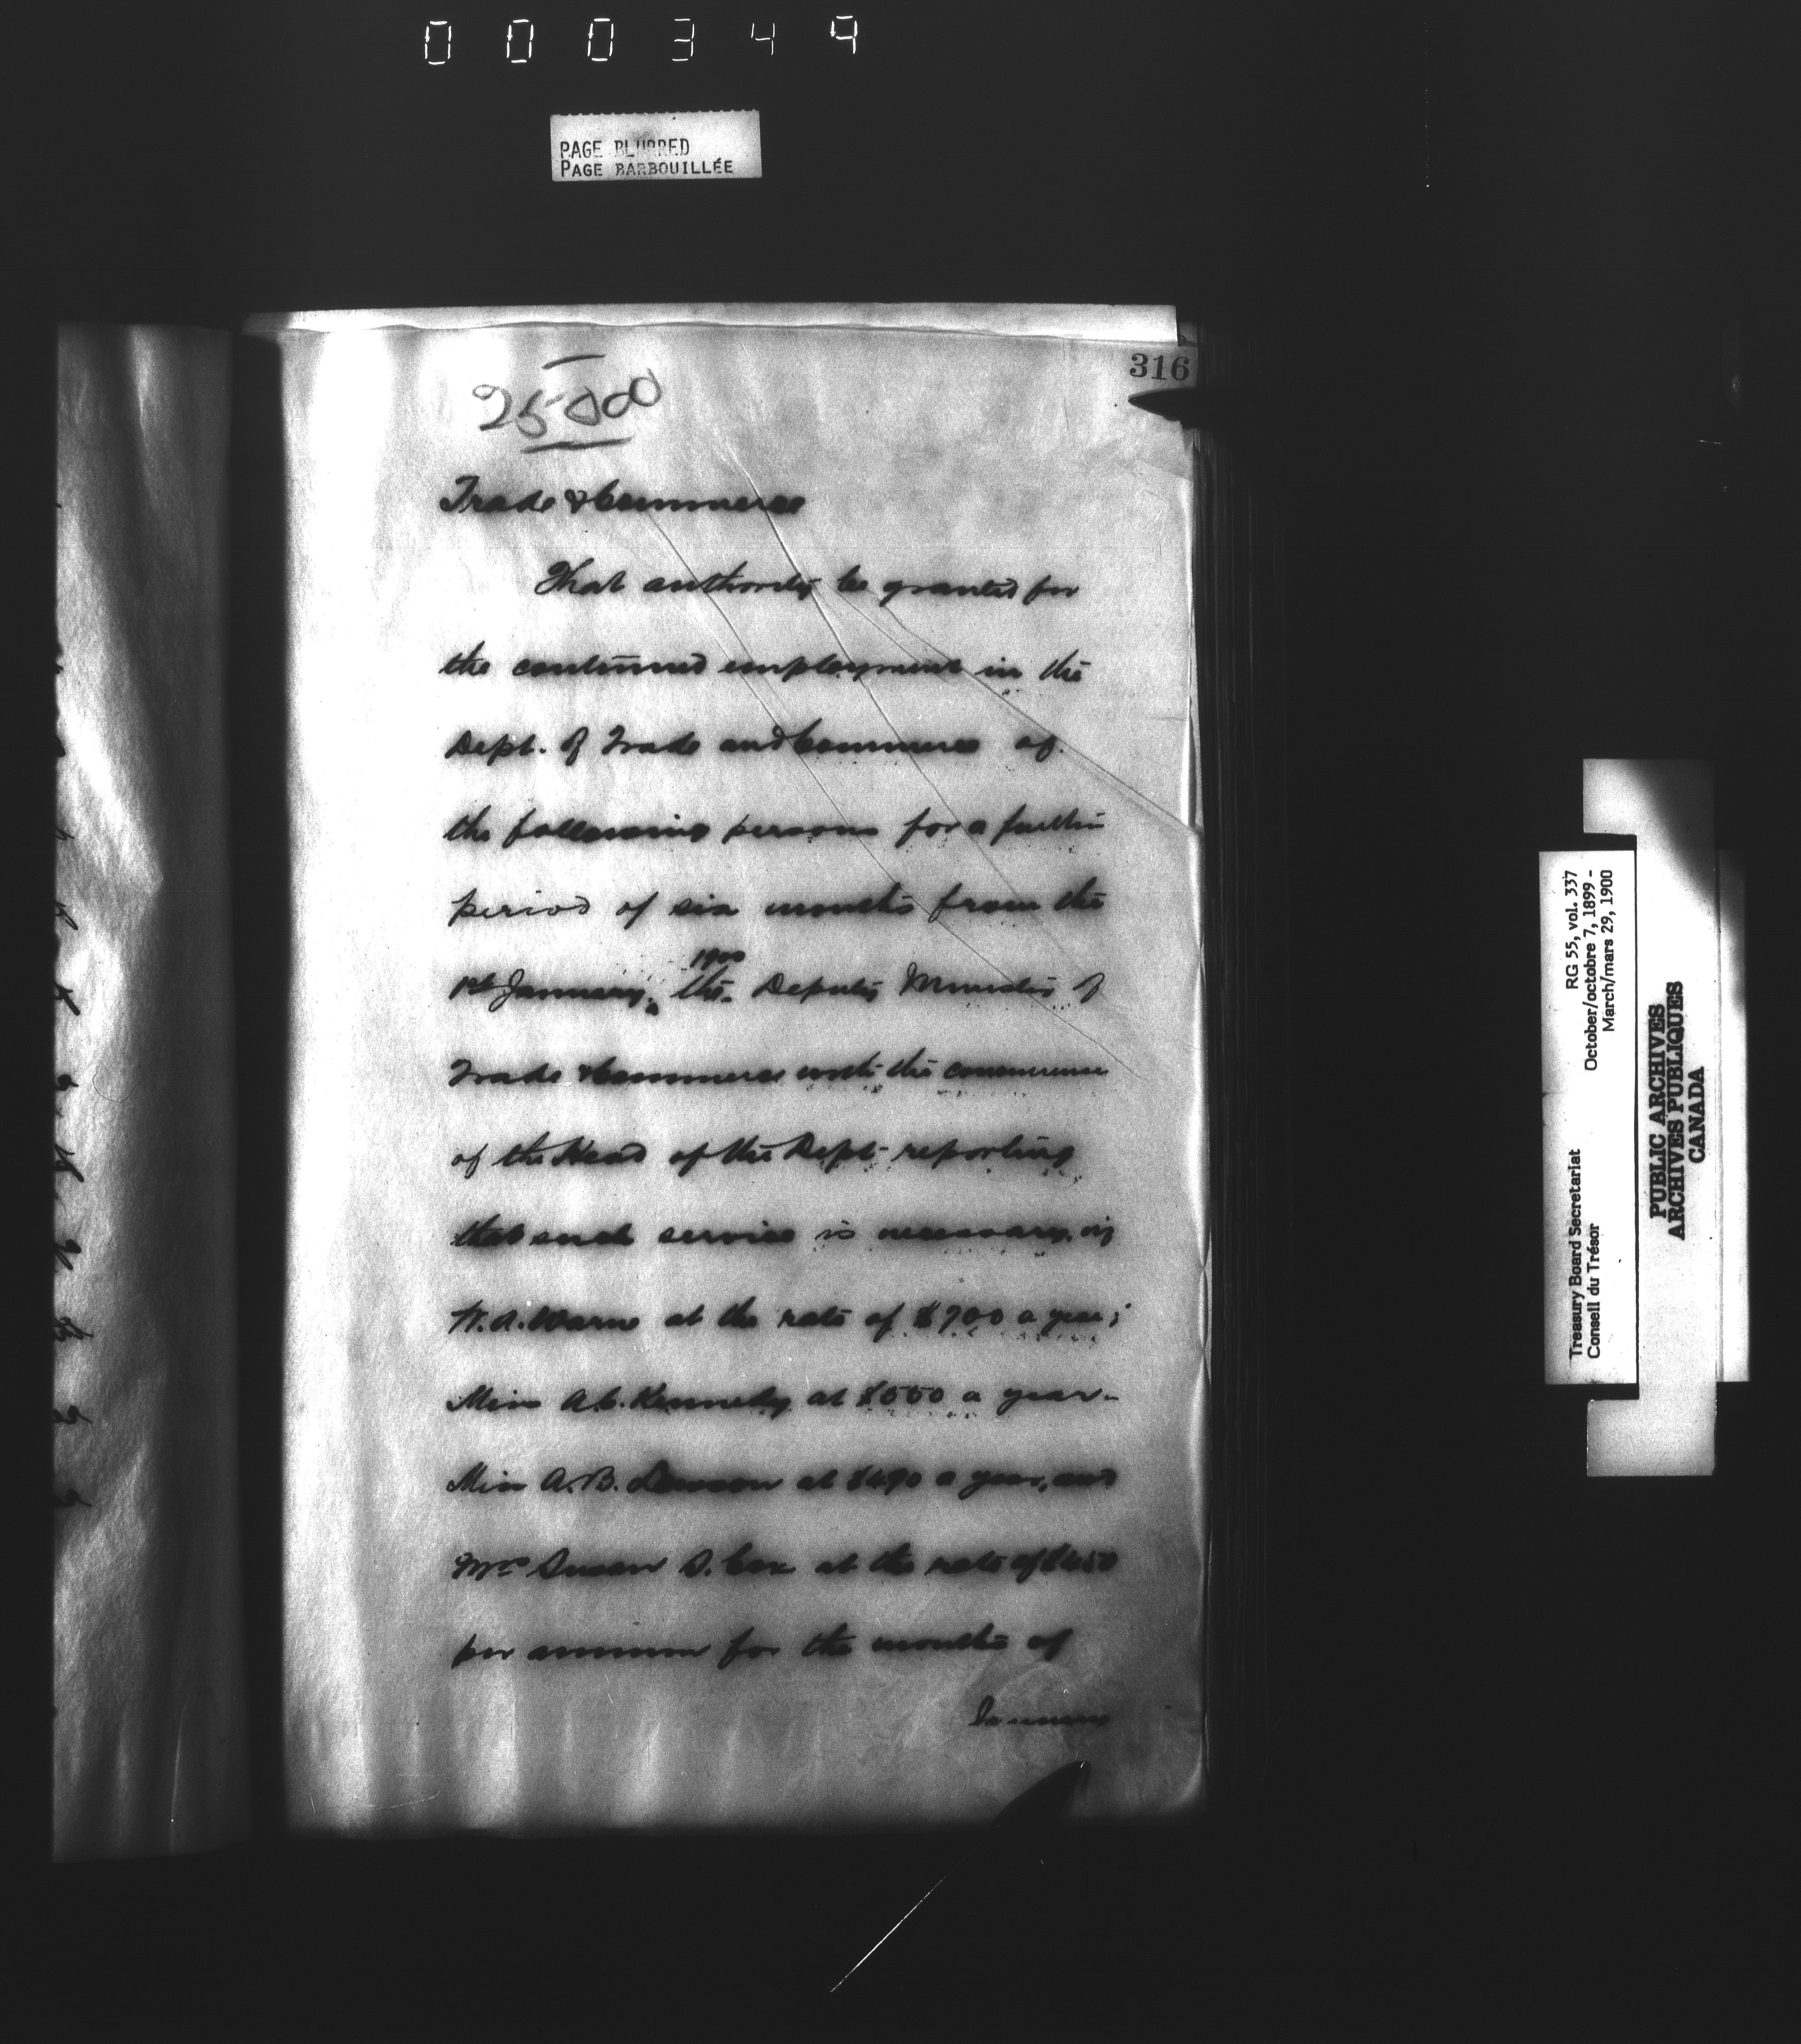 000349
PAGE BLURRED
PAGE BARBOUILLÉE
316
25000
Trade & Commerce
That authority be granted for
the continued employment in the
Dept. of Trade and Commerce of
the following persons for a further
period of six months from the
1st January, 1900 the Deputy Minister of
Trade & Commerce with the concurrence
of the Head of the Dept. reporting
that such service is necessary, viz
W.A. Warne at the rate of $700 a year;
Miss A.C. Kennedy at $550 a year.
Miss A.B. at $490 a year, and
Mrs Susan S. Cox at the rate of $450
per annum for the months of
January
RG 55, vol. 337
October/octobre 7, 1899 -
March/mars 29, 1900
Treasury Board Secretariat
Conseil du Trésor
PUBLIC ARCHIVES
ARCHIVES PUBLIQUES
CANADA